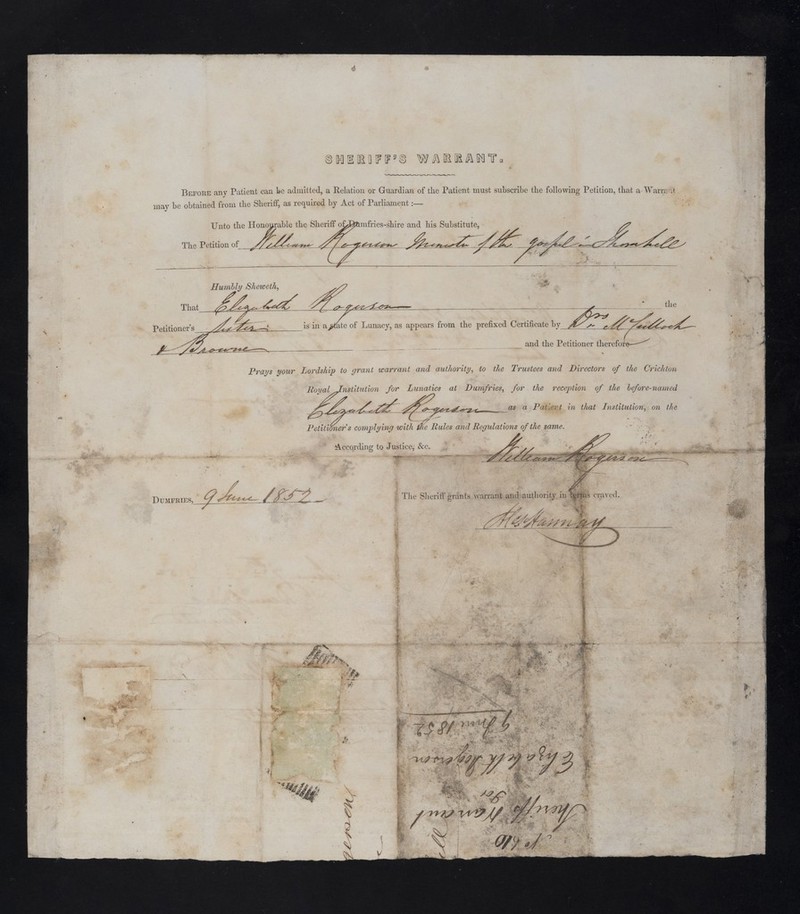 SHERIFF'S WARRANT.
BEFORE any Patient can be admitted, a Relation or Guardian of the Patient must subscribe the following Petition, that a Warrant
may be obtained from the Sheriff, as required by Act of Parliament :—
Unto the Honourable the Sheriff of Dumfries-shire and his Substitute,
The Petition of William Rogerson Minister of the gospel in Thornhill
Humbly Sheweth,
That Elizabeth Rogerson the
Petitioner's Sister is in a state of Lunacy, as appears from the prefixed Certificate by Drs McCulloch
& Browne and the Petitioner therefore
Prays your Lordship to grant warrant and authority, to the Trustees and Directors of the Crichton
Royal Institution for Lunatics at Dumfries, for the reception of the before-named
Elizabeth Rogerson as a Patient in that Institution, on the
Petitioner's complying with the Rules and Regulations of the same.
According to Justice, &c.
William Rogerson
DUMFRIES, 9 June 1852
The Sheriff grants warrant and authority in terms craved.
Hannay
Sheriff's Warrant
for
Elizabeth Rogerson
9 June 1852
erson
ll